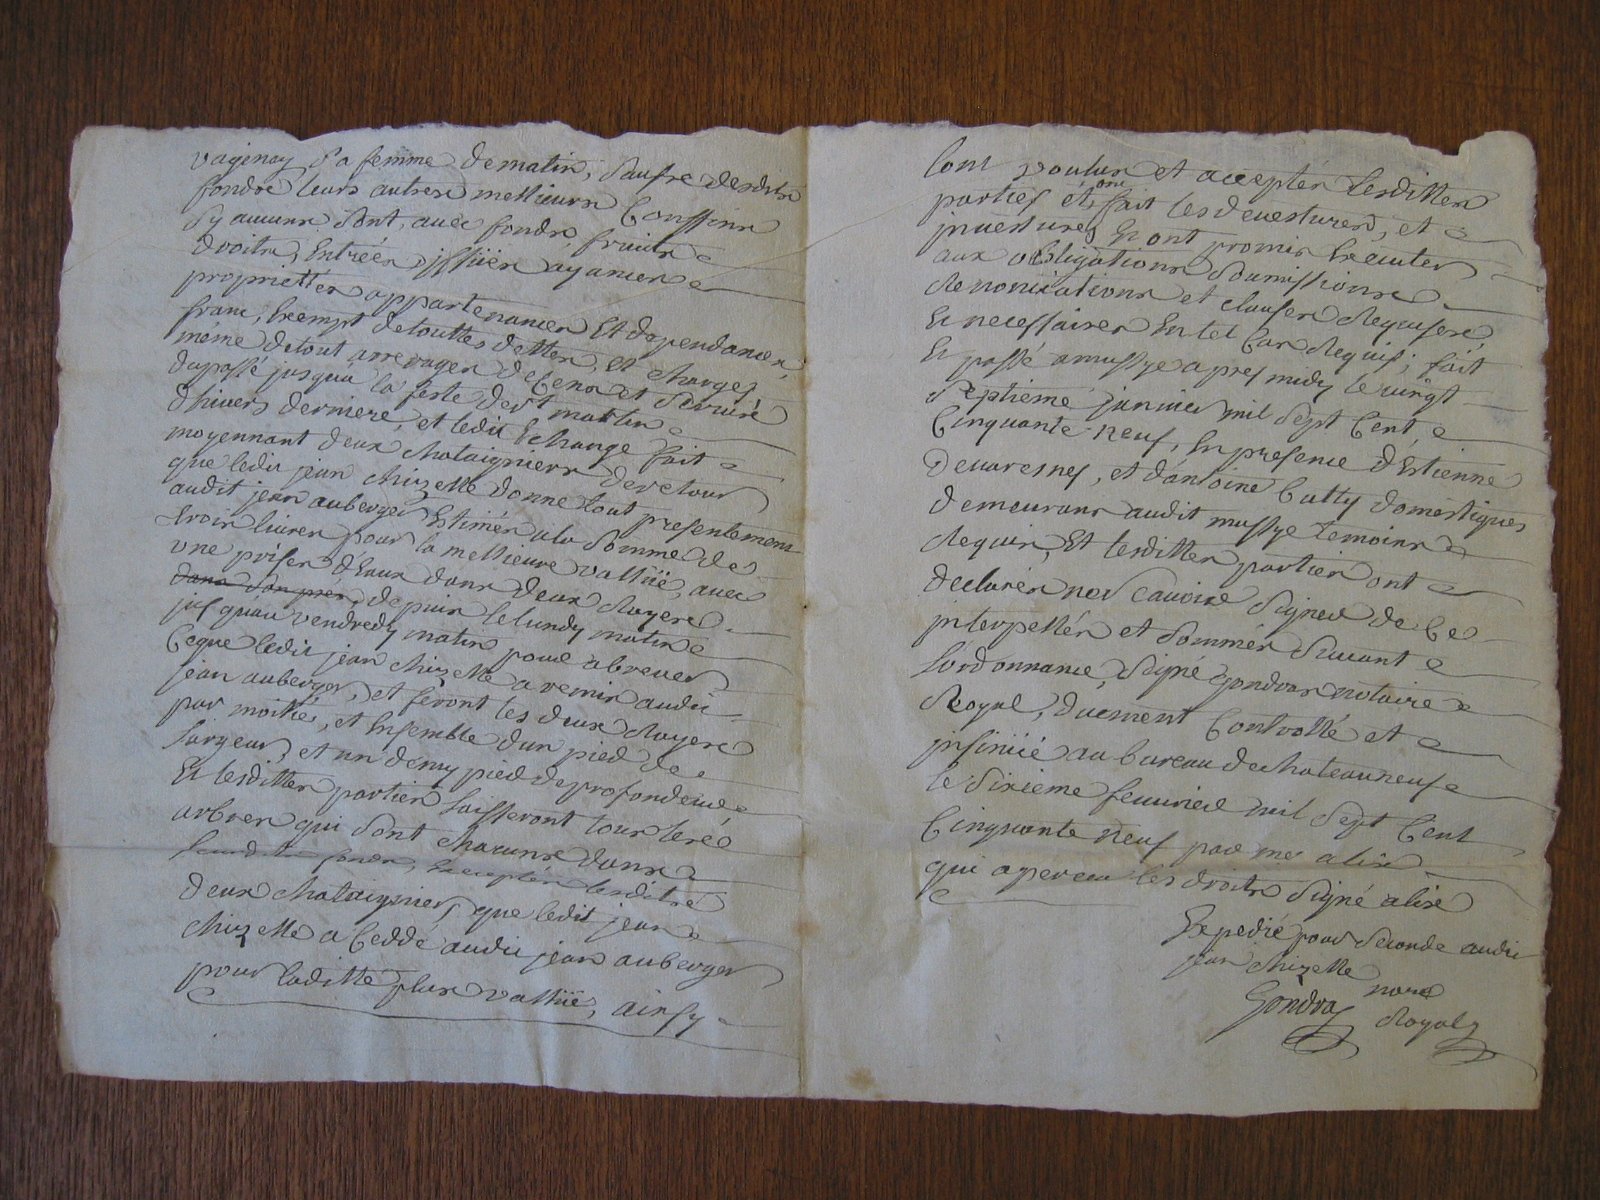 vagenay sa femme de matin, sauf se desdits
fondre leurs autres mellieurs Conffins
sy aucuns sont, avec fonds, fruits
droits, Entrées, jssües ayances
proprietter appartenances Et dependances,
franc, Exempt de touttes dettes, et charges
même de tout arrerages de Cens et servis
du passé jusqu'a la feste de st martin
d'hivers derniere, et ledit Echange fait
moyennant deux chataigniers de retour
que ledit jean chizelle donne tout presentement
audit jean auberger Estimés a la somme de
trois livres pour la mellieure vallüe, avec
une prises d'Eaux dans deux Rayere
dans son prés, depuis le lundy matin
jusquau vendredy matin pour abrever
Ceque ledit jean chizelle a remis audit
jean auberger, et feront les deux Rayere
par moitié, et Ensemble d'un pied de
largeur, et un demy pied de profondeur
Et lesdittes parties laisseront tous les
arbres qui sont chacuns dans
fonds, Exceptés lesdits
deux chataigniers que ledit jean
chizelle a Ceddé audit jean auberger
pour laditte plus vallüe, ainsy
lont voulus et acceptés lesdittes
parties et, ont fait les devestures, et
jnvestures En ont promis Executer
aux obligations soumissions
Renonciations et clauses Requises
En necessaires En tel Cas Requis; fait
Et passé a mussye apres midy le vingt
septieme janvier mil sept Cent
Cinquante neuf, En presence d'Estienne
Devaresnes, et d'antoine Catty domestiques
demeurans audit mussye temoins
Requis, Et lesdittes parties ont
declarés nes Cavoire signer de Ce
jnterpellés et sommés suivant
lordonnance, signé gondras notaire
Royal, duement Controllé et
jnsinüé au bureau de chateauneuf
le sixieme fevvrier mil sept Cent
Cinquante neuf par me alix
qui a perceu les droits signé alix
Expedié pour seconde audit
jean chizelle
Gondras nore
Royal